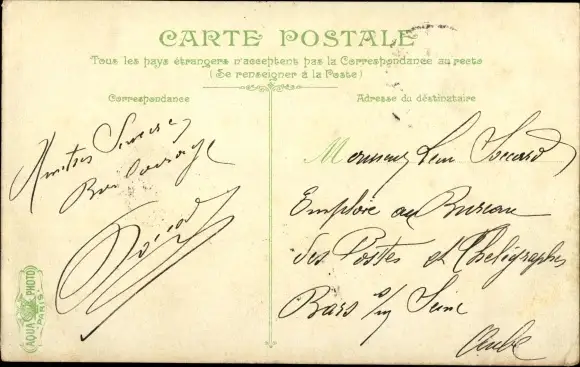 CARTE POSTALE
Tous les pays étrangers n'acceptent pas la Correspondance au recto
(Se renseigner à la Poste)
Correspondance
Adresse du déstinataire
Amitiés Sincères
Bon courage
Monsieur
Employé au Bureau
des Postes et Télégraphes
Bars s/ Seine
Aube
AQUA PHOTO
PARIS